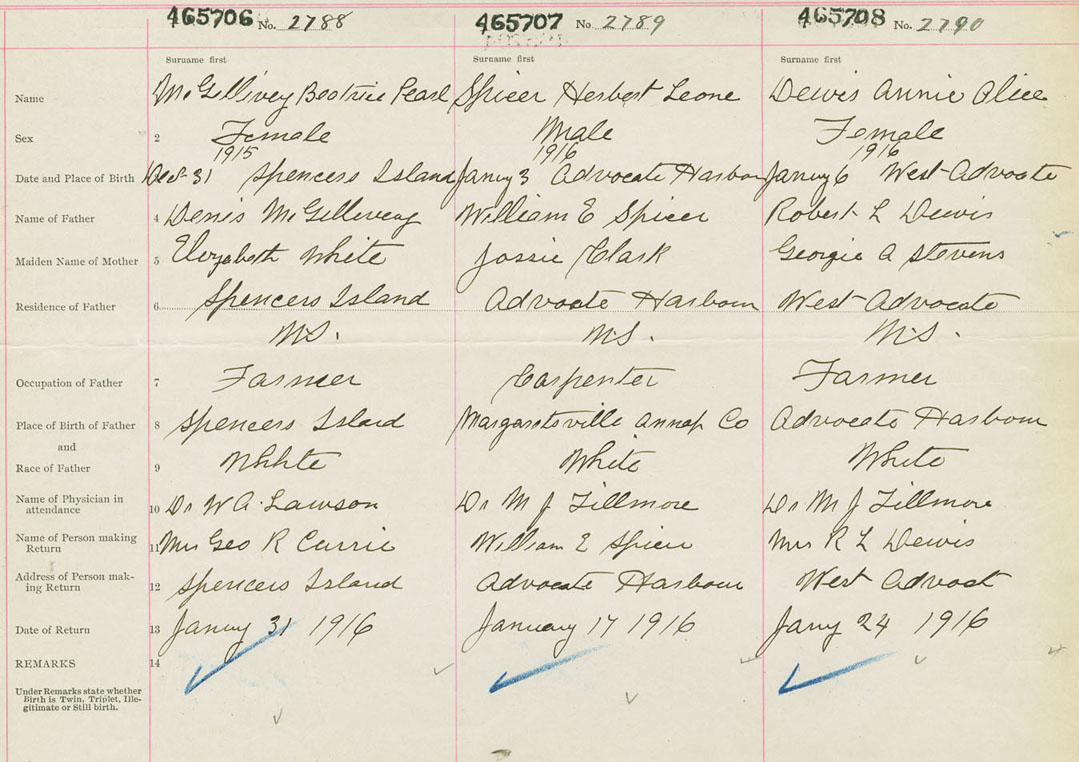 465706 No. 2788 465707 No. 2789 465708 No. 2790
Surname first Surname first Surname first
Name McGillivey Beatrice Pearl Spicer Herbert Leone Dewis Annie Alice
Sex 2 Female Male Female
1915 1916 1916
Date and Place of Birth Dec 31 Spencers Island Januy 3 Advocate Harbour Januy 6 West Advocate
Name of Father 4 Denis McGillevey William E Spicer Robert L Dewis
Maiden Name of Mother 5 Elizabeth White Jossie Clark Georgie A Stevens
Residence of Father 6 Spencers Island Advocate Harbour West Advocate
N.S. N.S. N.S.
Occupation of Father 7 Farmer Carpenter Farmer
Place of Birth of Father 8 Spencers Island Margaretsville Annap Co Advocate Harbour
and
Race of Father 9 White White White
Name of Physician in
attendance 10 Dr W A. Lawson Dr M J Fillmore Dr M J Fillmore
Name of Person making
Return 11 Mrs Geo R Currie William E Spicer Mrs R L Dewis
Address of Person mak-
ing Return 12 Spencers Island Advocate Harbour West Advoct
Date of Return 13 Januy 31 1916 January 17 1916 Jany 24 1916
REMARKS 14
Under Remarks state whether
Birth is Twin, Triplet, Ille-
gitimate or Still birth.